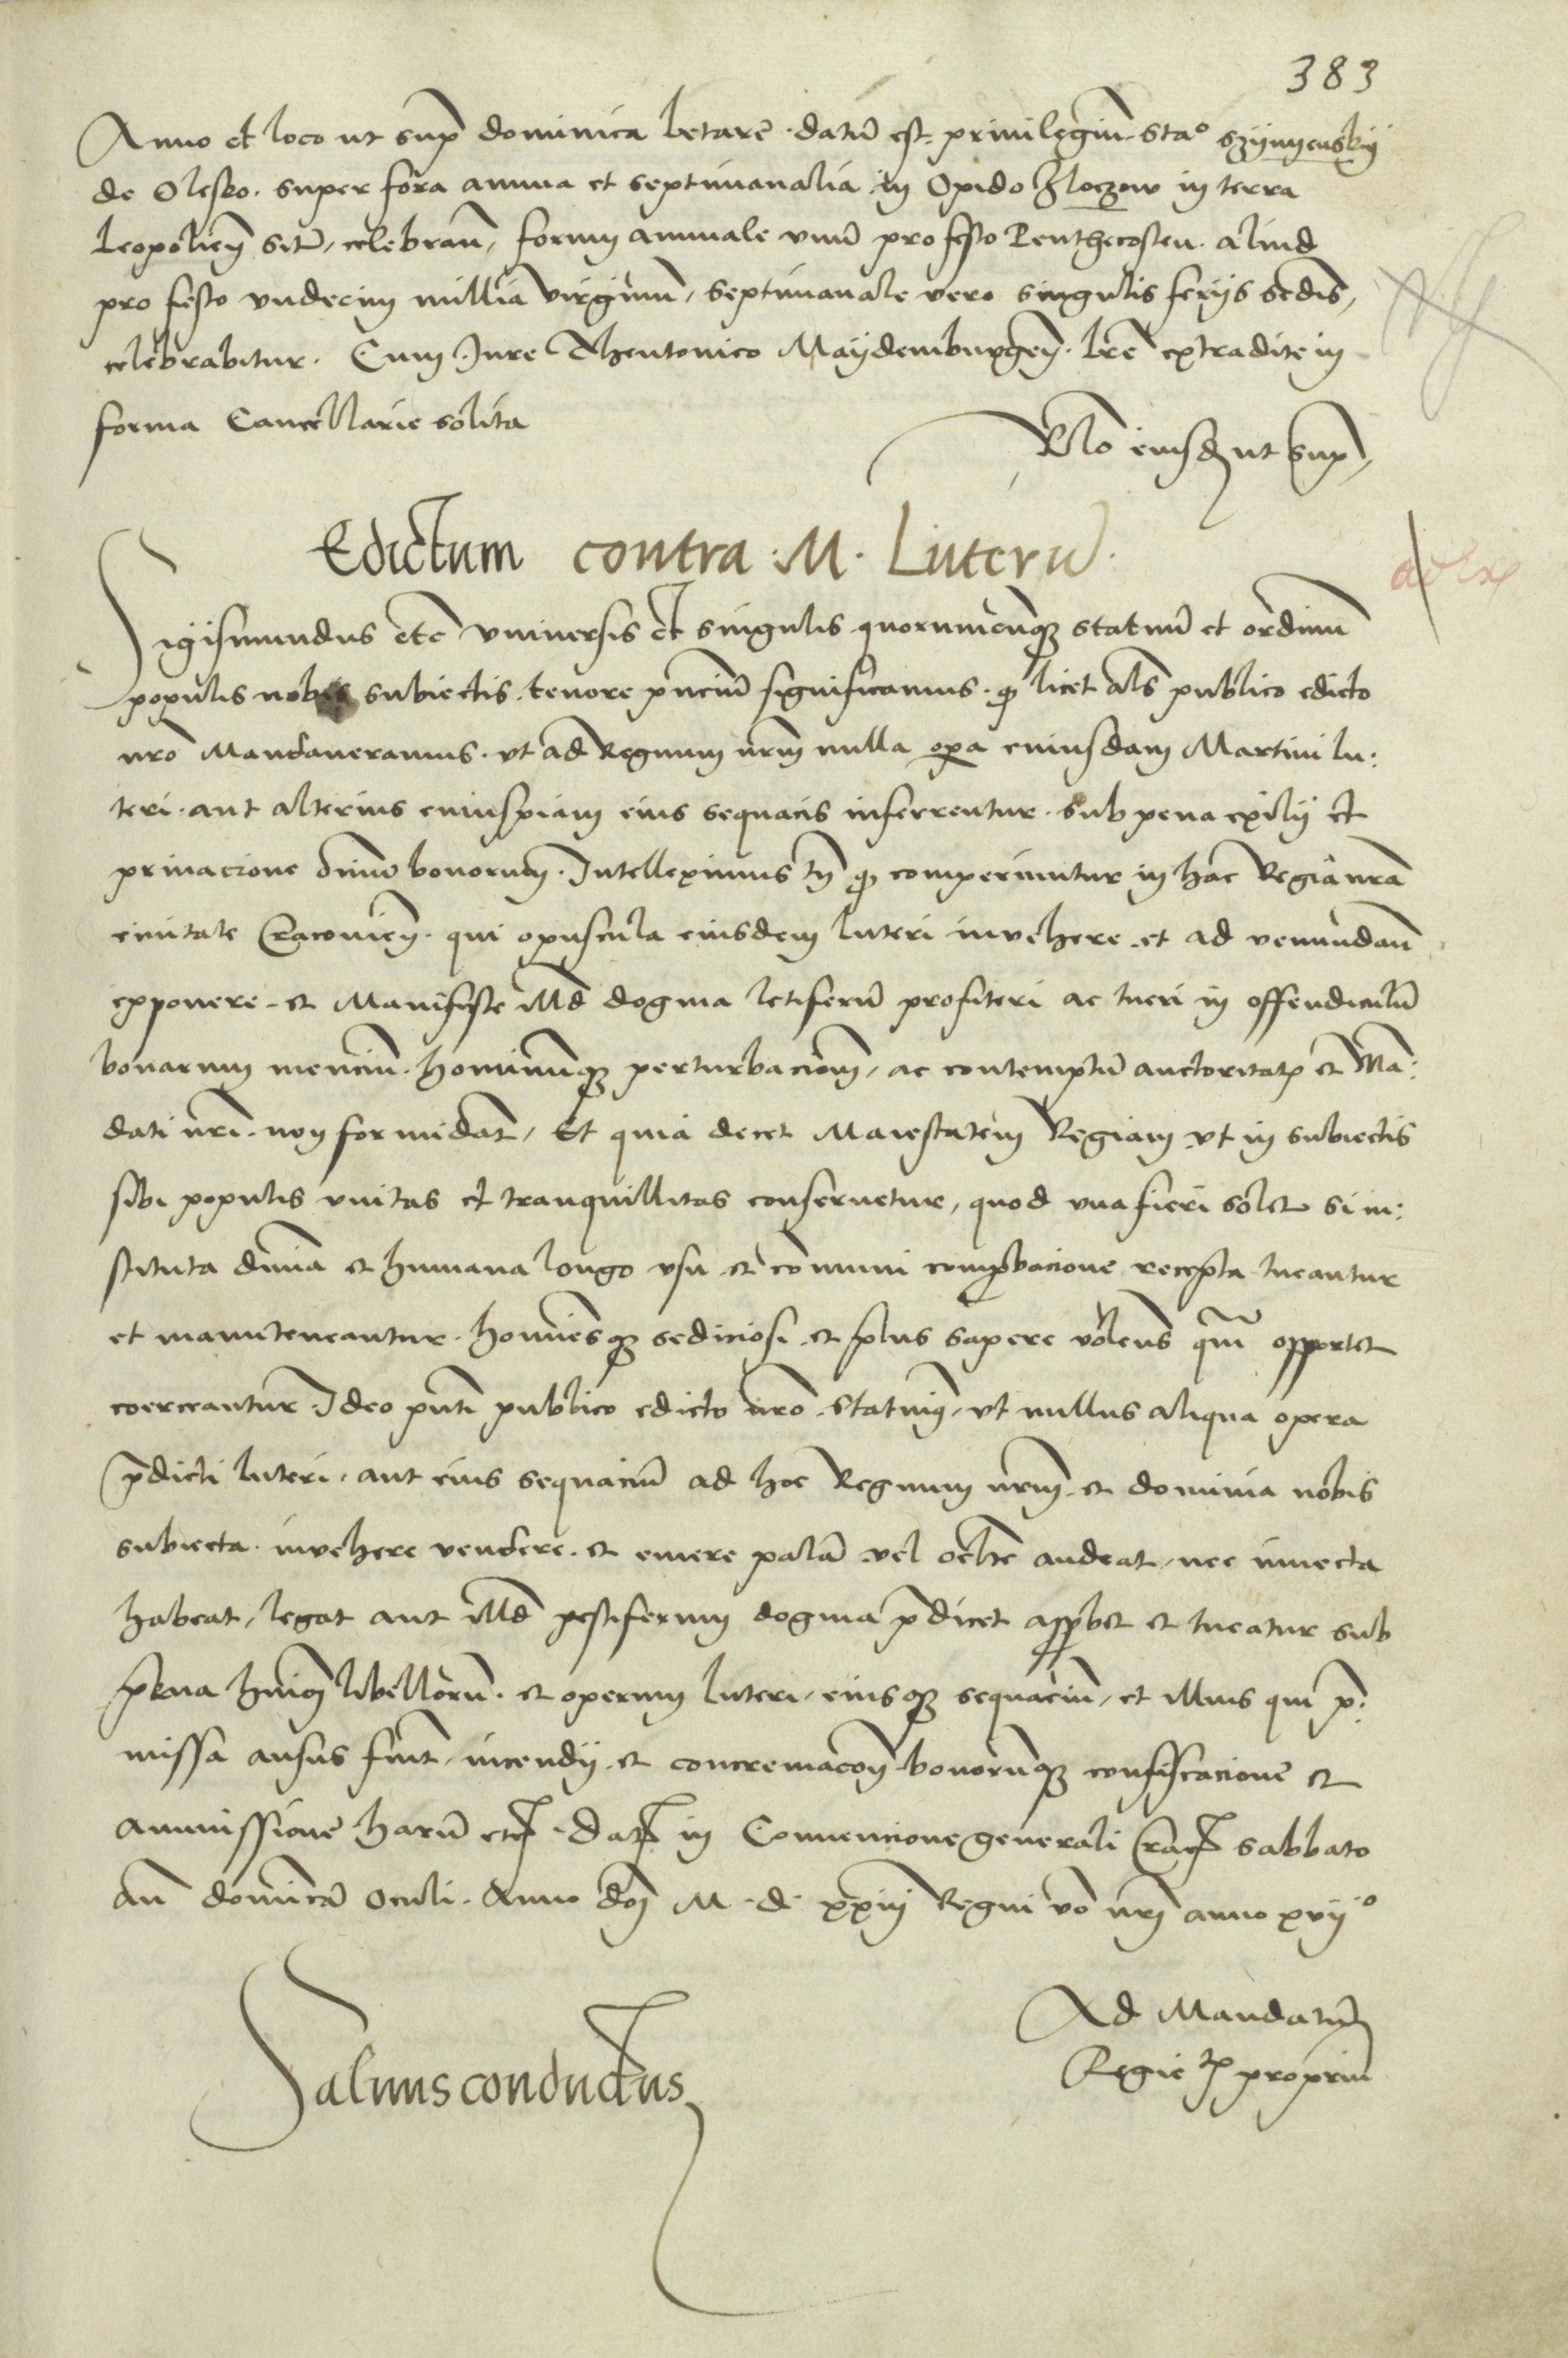 383
Anno et loco ut sup dominica letare · datū est privilegiū Stao Szyinyenskij
de Olesko. super fora annua et septimanalia in Opido Zloczow in terra
Leopolien sitū, celebran, forum annuale unū pro festo Penthecosten. aliud
pro festo undecim millia virginū, septimanale vero singulis ferijs sedis,
celebrabitur. Cum Jure Theutonico Maydemburgen. lre extradite in
forma Cancellarie solita
Rlo eiusdz ut sup,
Edictum contra .M. Luterū.
ad Ex
Sigismundus etc universis et singulis quorumcunqz statuū et ordinū
populis nobis subiectis. tenore pnciū significamus. qz licet als publico edicto
nro mandaveramus. ut ad Regnum nrm nulla opa cuiusdam Martini lu:
teri. aut alterius cuiuspiam eius sequacis inferrentur. sub pena exilij et
privacione oīum bonorum. Intelleximus tn qz comperiuntur in hac Regia nra
civitate Cracovien. qui opuscula eiusdem luteri invehere et ad venundan
exponere et manifeste illd dogma letiferū profiteri ac tueri in offendiculū
bonarum menciū. hominūqz perturbacionem, ac contemptū auctoritatis et Ma:
dati nri. non formidāt, Et quia decet Maiestatem Regiam ut in subiectis
sibi populis unitas et tranquillitas conservetur, quod una fieri solet si in:
stituta divina et humana longo usu et cōmuni comprobacione recepta tueantur
et manuteneantur. hominesqz sediciosi et plus sapere volens qm opportet
coerceantur. Ideo pnti publico edicto nro statuimus, ut nullus aliqua opera
pdicti luteri, aut eius sequaciū ad hoc Regnum nrm et dominia nobis
subiecta. invehere vendere. et emere palā vel occlte audeat, nec invecta
habeat, legat aut illd pestiferum dogma pdicet approbet et tueatur sub
pena huiōi libellorū. et operum luteri, eiusqz sequaciū, et illius qui p:
missa ausus fuit, incendij et concremacōis bonorūqz confiscacione et
ammissione harū etc. Dat in Convencione generali Crac sabbato
an dominicā Oculi. Anno doī M. d. xxiij Regni vo nri anno xvijo
Ad Mandatū
Regie mtis propriū
Salvus conductus